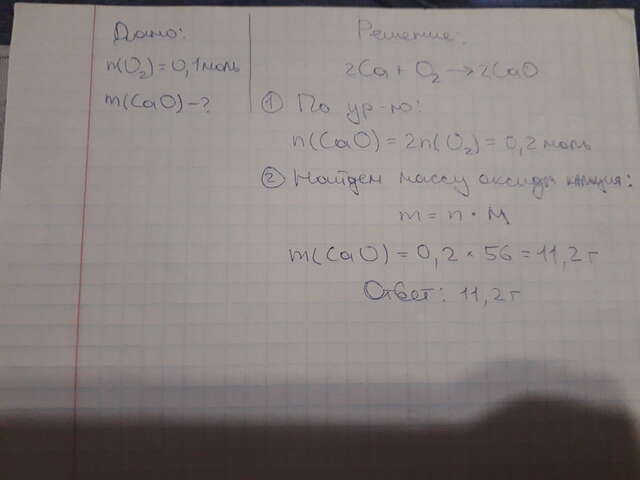 Дано:
n(O₂) = 0,1 моль
m(CaO) - ?
Решение:
2Ca + O₂ → 2CaO
① По ур-ю:
n(CaO) = 2n(O₂) = 0,2 моль
② Найдем массу оксида кальция:
m = n · M
m(CaO) = 0,2 × 56 = 11,2 г
Ответ: 11,2 г